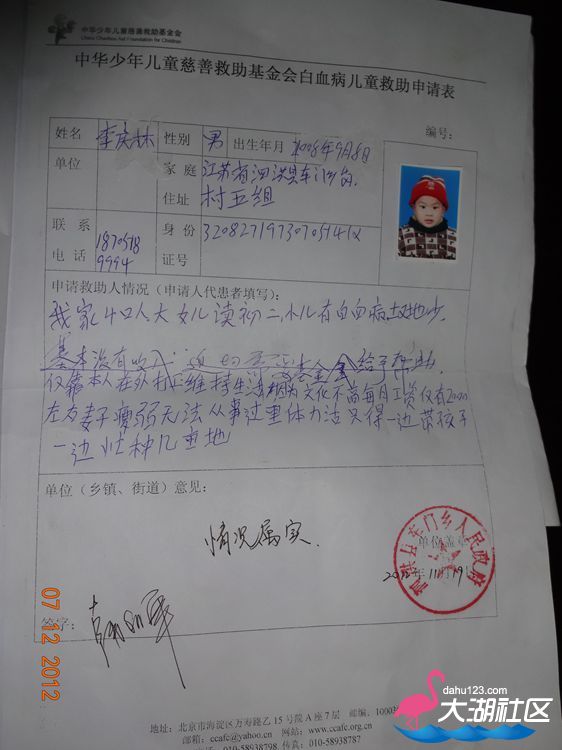 中华少年儿童慈善救助基金会
中华少年儿童慈善救助基金会白血病儿童救助申请表
编号：
姓名 李庆林 性别 男 出生年月 2008年9月8日
单位 家庭住址 江苏省泗洪县车门乡
村五组
联系电话 1870518
9994
身份证号
申请救助人情况（申请人代患者填写）：
我家4口人、大女儿读初二，小儿有白血病土地少，
基本没有收入 基金会给予帮助
仅靠本人在外打工维持生活 因为文化不高每月工资仅有2000
左右妻子瘦弱无法从事过重体力活只得一边带孩子
一边忙种几亩地
单位（乡镇、街道）意见：
情况属实
泗洪县车门乡人民政府
单位盖章
2012年11月19日
签字：
07 12 2012
地址：北京市海淀区万寿路乙15号院A座7层 邮编：1000
邮箱：ccafc@yahoo.cn 网址：www.ccafc.org.cn
010-58938798 传真：010-58938787
dahu123.com
大湖社区